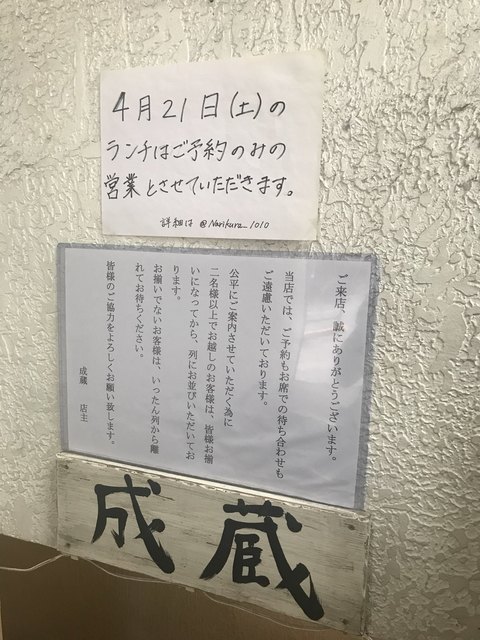 4月21日(土)の
ランチはご予約のみの
営業とさせていただきます。
詳細は @Narikura_1010
ご来店、誠にありがとうございます。
当店では、ご予約もお席での待ち合わせも
ご遠慮いただいております。
公平にご案内させていただく為に
二名様以上でお越しのお客様は、皆様お揃
いになってから、列にお並びいただいてお
ります。
お揃いでないお客様は、いったん列から離
れてお待ちください。
皆様のご協力をよろしくお願い致します。
成蔵 店主
成蔵